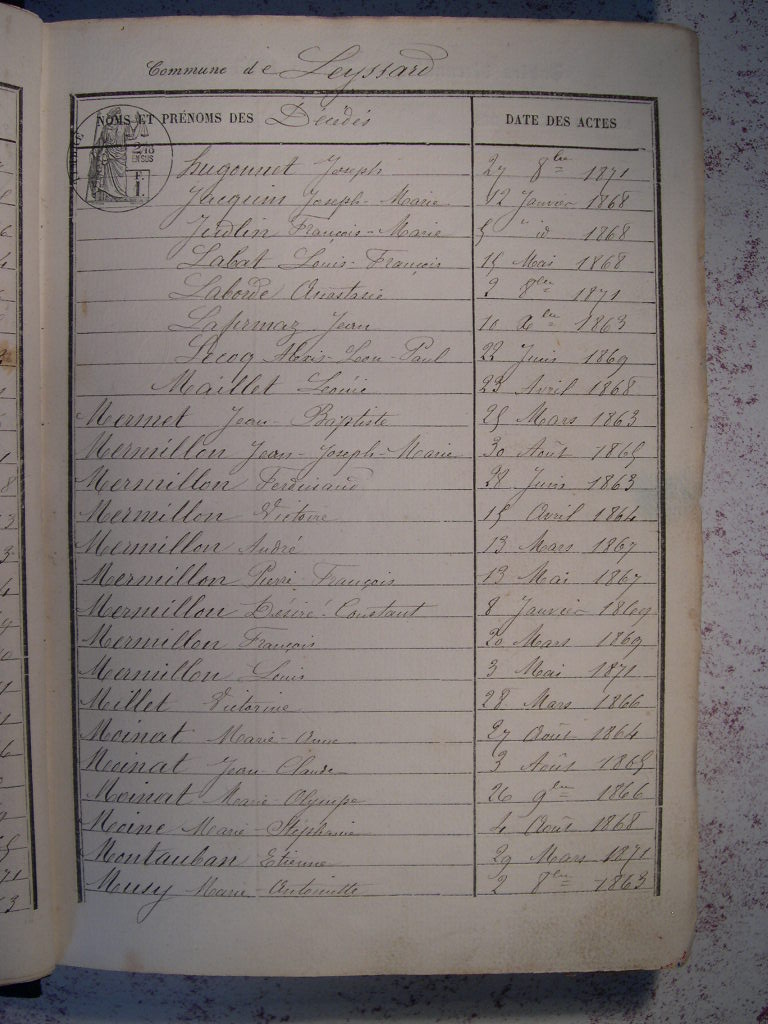 Commune de Leyssard
NOMS ET PRÉNOMS DES Décédés DATE DES ACTES
2/10 EN SUS
Hugonnet Joseph 27 8bre 1871
Jacquin Joseph-Marie 12 Janvier 1868
Judlin François-Marie 5 " id 1868
Labat Louis-François 15 Mai 1868
Laborde Anastasie 2 8bre 1871
Jean 10 Xbre 1863
Lecoq Alexis-Lou-Paul 22 Juin 1869
Maillet 23 Avril 1868
Mermet Jean-Baptiste 25 Mars 1863
Mermillon Jean-Joseph-Marie 30 Août 1865
Mermillon Ferdinand 28 Juin 1863
Mermillon Victoire 15 Avril 1864
Mermillon André 13 Mars 1867
Mermillon Pierre-François 13 Mai 1867
Mermillon Désiré-Constant 8 Janvier 1869
Mermillon François 20 Mars 1869
Mermillon Louis 3 Mai 1871
Millet Victorine 28 Mars 1866
Moinat Marie-Anne 27 Août 1864
Moinat Jean Claude 3 Août 1865
Moinat Marie-Olympe 26 9bre 1866
Moine Marie-Stéphanie 4 Août 1868
Montauban Etienne 29 Mars 1871
Musy Marie-Antoinette 2 8bre 1863